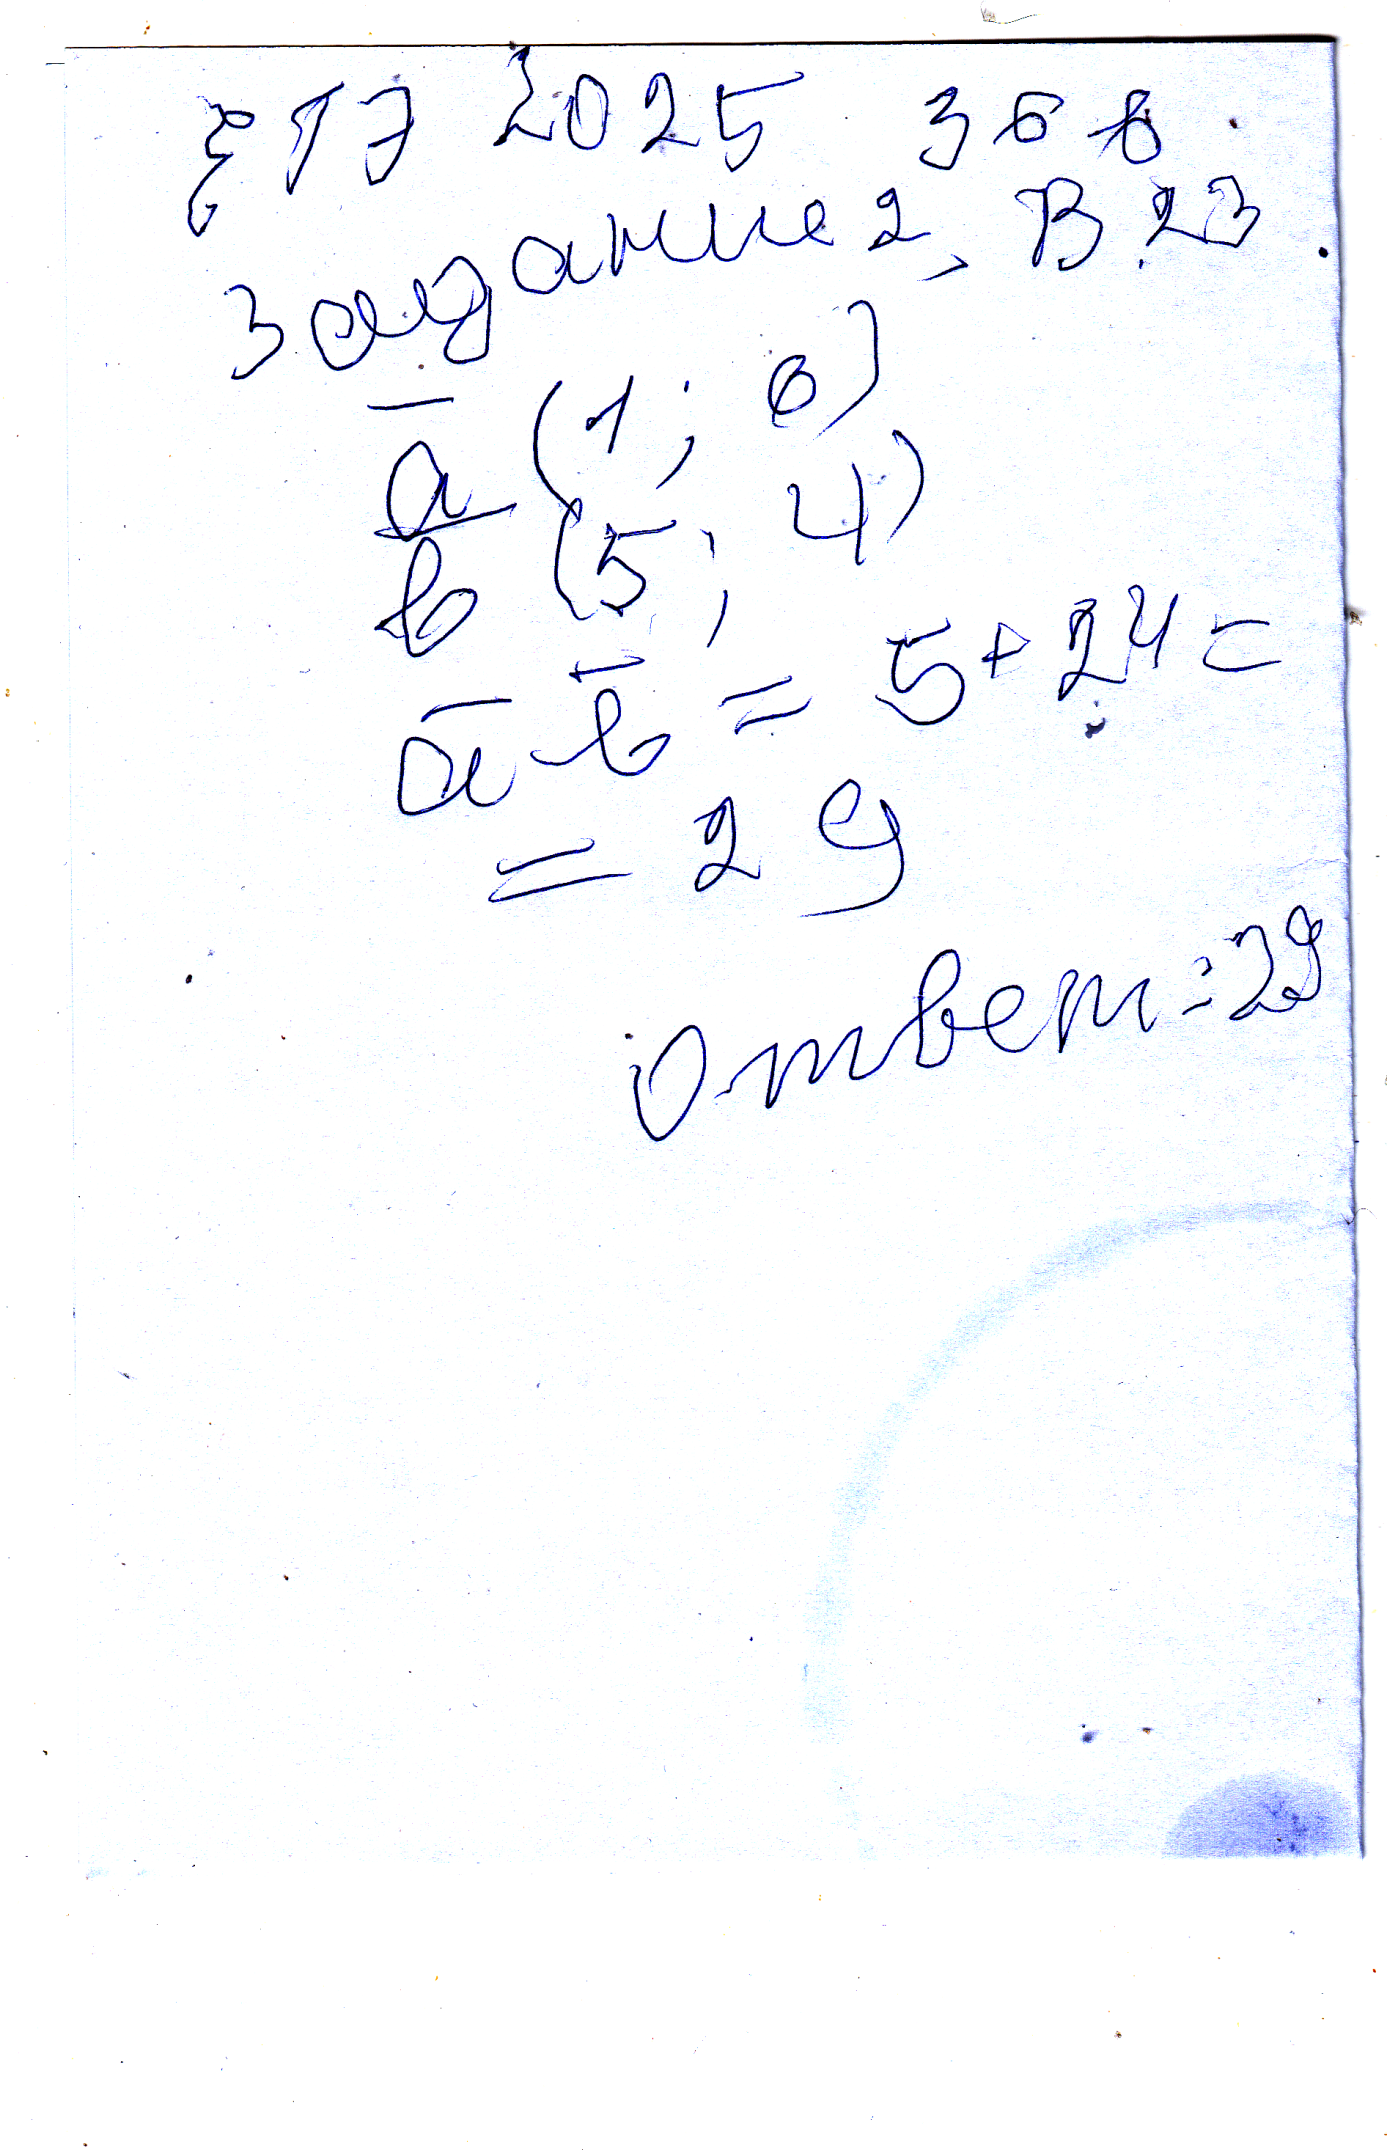 ЕГЭ 2025 36 в.
Задание 2, В 23.
a̅ (1; 6)
b̅ (5; 4)
a̅ b̅ = 5 + 24 =
= 29
Ответ: 29